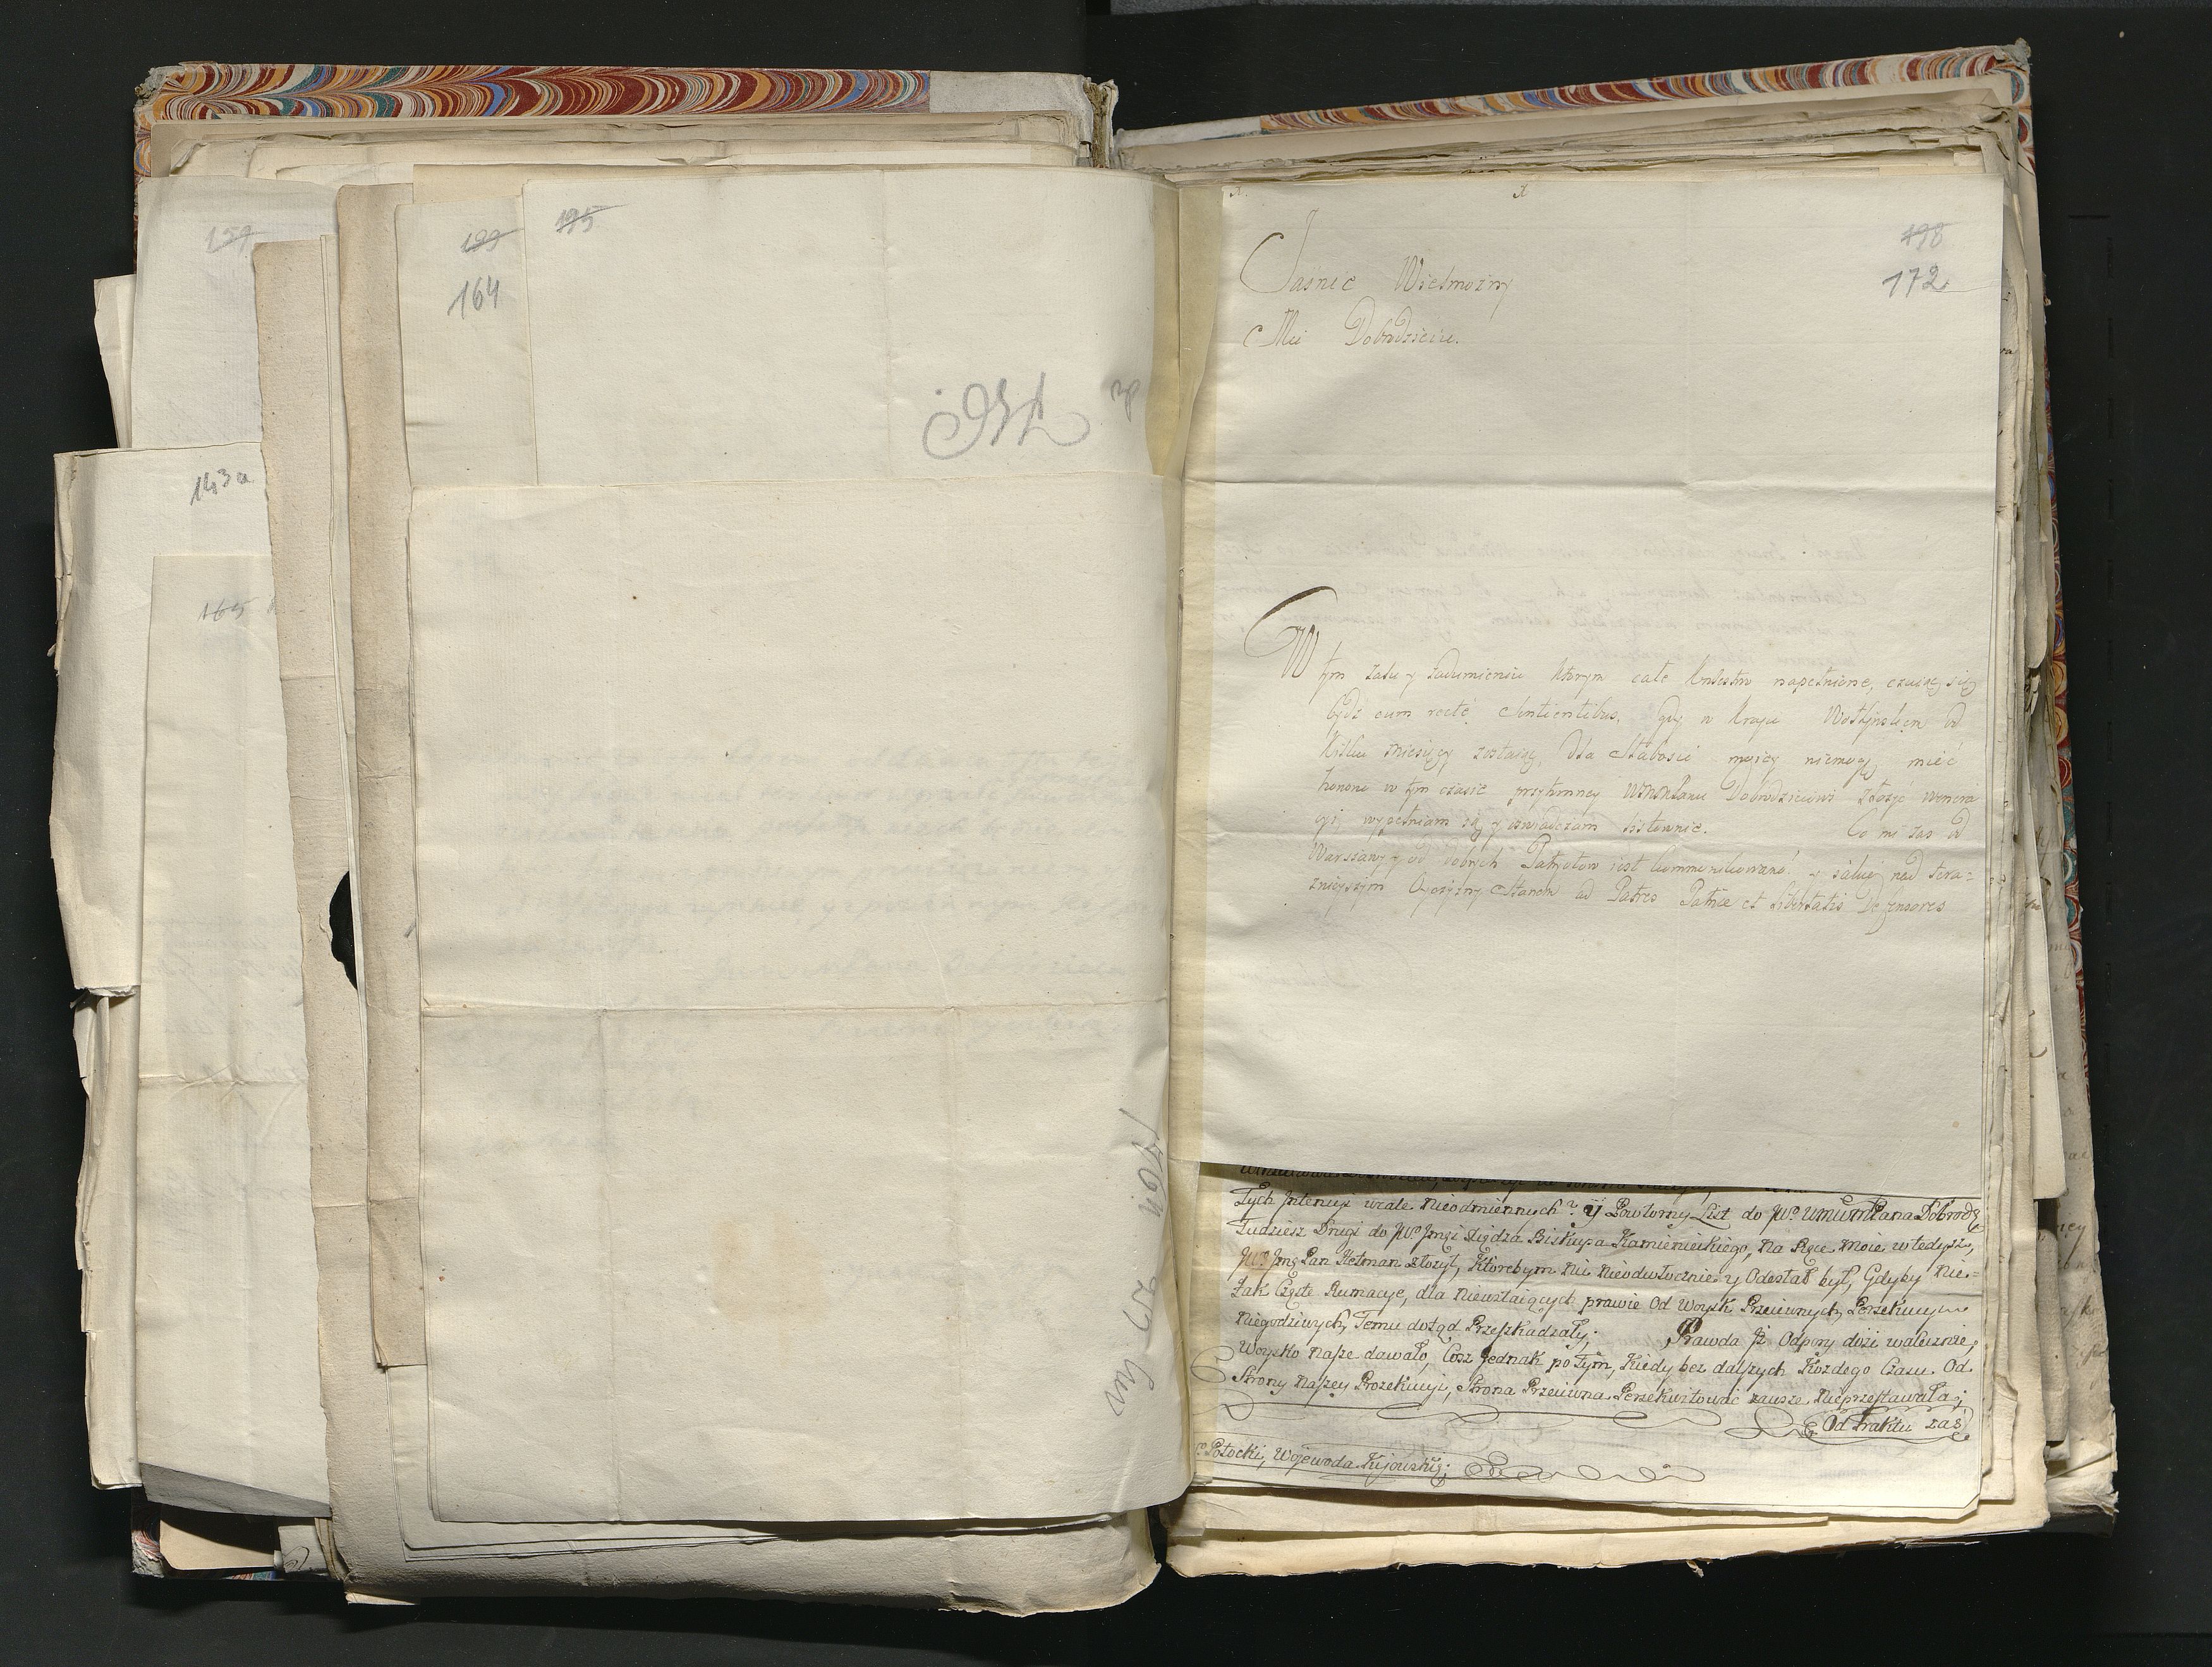 159
143a
165
199
164
195
198
172
Jasnie Wielmożny
Mci Dobrodzieiu.
W tym żalu y zadumieniu ktorym całe Krolestwo napełnione, czuiąc się
bydz cum recte Sentientibus, gdy w Kraju Wołyńskim od
Kilku miesięcy zostaię, dla Słabosci moiey niemogę mieć
honoru w tym czasie przytomney WMMPanu Dobrodzieiowi złożyc wenera
cyi, wypełniam ią y oswiadczam listownie. Co mi zas od
Warszawy y od dobrych Patryotow iest kommunikowano y żaluię nad tera=
znieyszym Oyczyzny Stanem ad Patres Patriæ et Libertatis Defensores
Tych Intencyi wcale Nieodmiennych? ÿ Powtorny List do JWo WMWMPana Dobrodz
Tudziesz Drugi do JWo Jmsci Xiędza Biskupa Kamienieckiego, Na Ręce Moie w tedysz,
JWo Jmsc Pan Hetman złozył, Ktorebym Nie Nieodwłocznie y Odesłał był, Gdyby Nie=
Tak Częste Rumacye, dla Nieustaiących prawie Od Woysk Przeciwnych, Persekucyi
Niegodziwych, Temu dotąd Przeszkadzały; Prawda Jż Odpory dosi walecznie,
Woysko Nasze dawało, Cosz Jednak po Tym, Kiedy bez dalszych Kozdego Czasu. Od
Strony Naszey Prozekucyi, Strona Przeciwna Persekwitować zawsze Nieprzestawała;
Od Traktu zaś
Potocki, Wojewoda Kijowski;